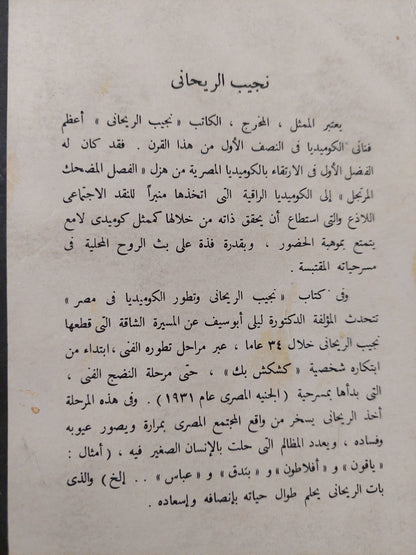 نجيب الريحانى
يعتبر الممثل ، المخرج ، الكاتب « نجيب الريحانى » أعظم
فنانى الكوميديا فى النصف الأول من هذا القرن . فقد كان له
الفضل الأول فى الارتقاء بالكوميديا المصرية من هزل « الفصل المضحك
المرتجل » إلى الكوميديا الراقية التى اتخذها منبراً للنقد الاجتماعى
اللاذع والتى استطاع أن يحقق ذاته من خلالها كممثل كوميدى لامع
يتمتع بموهبة الحضور ، وبقدرة فذة على بث الروح المحلية فى
مسرحياته المقتبسة .
وفى كتاب « نجيب الريحانى وتطور الكوميديا فى مصر »
تتحدث المؤلفة الدكتورة ليلى أبوسيف عن المسيرة الشاقة التى قطعها
نجيب الريحانى خلال ٣٤ عاما ، عبر مراحل تطوره الفنى ، ابتداء من
ابتكاره شخصية « كشكش بك » ، حتى مرحلة النضج الفنى ،
التى بدأها بمسرحية ( الجنيه المصرى عام ١٩٣١ ) . وفى هذه المرحلة
أخذ الريحانى يسخر من واقع المجتمع المصرى بمرارة ويصور عيوبه
وفساده ، ويعدد المظالم التى حلت بالإنسان الصغير فيه ، ( أمثال :
« ياقوت » و « أفلاطون » و « بندق » و « عباس » .. إلخ ) والذى
بات الريحانى يحلم طوال حياته بإنصافه وإسعاده .